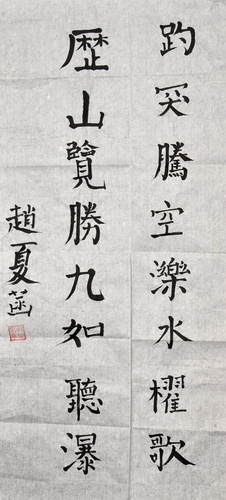 趵突騰空濼水櫂歌
歷山覽勝九如聽瀑
趙夏菡